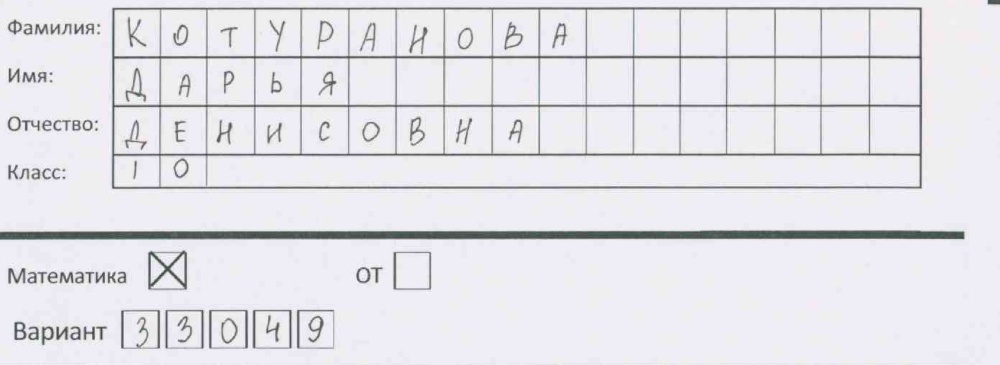 Фамилия: КОТУРАНОВА
Имя: ДАРЬЯ
Отчество: ДЕНИСОВНА
Класс: 10
Математика ☒ ОТ ☐
Вариант 33049